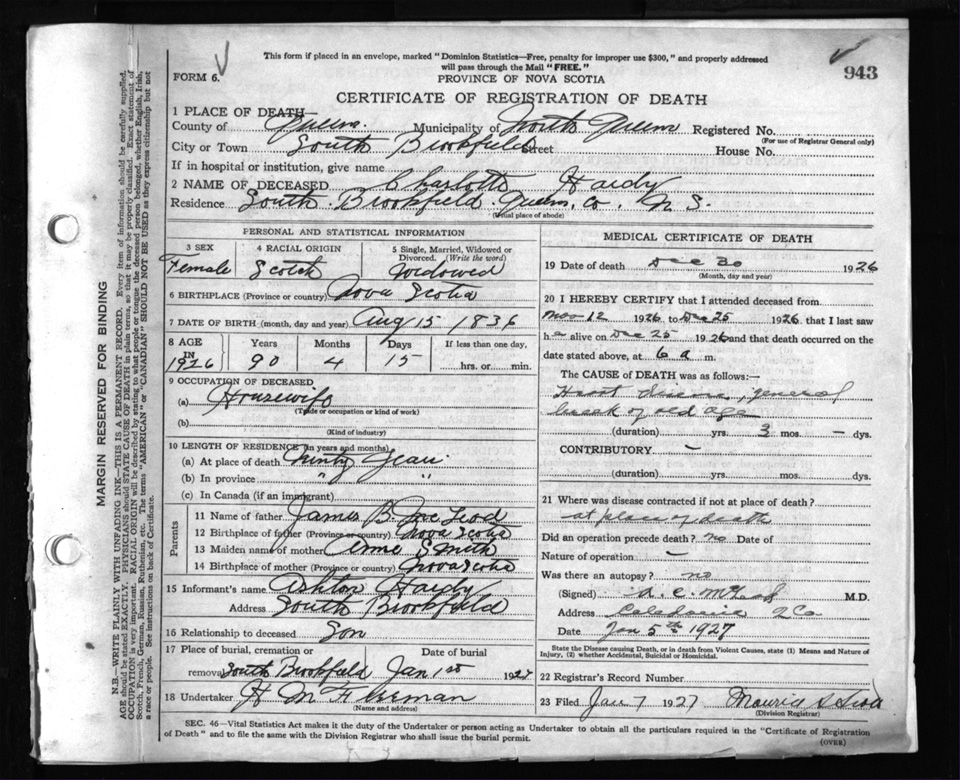 This form if placed in an envelope, marked "Dominion Statistics—Free, penalty for improper use $300," and properly addressed
will pass through the Mail "FREE."
FORM 6.
PROVINCE OF NOVA SCOTIA
943
CERTIFICATE OF REGISTRATION OF DEATH
1 PLACE OF DEATH—
County of Queens. Municipality of North Queens Registered No.
(For use of Registrar General only)
City or Town South Brookfield Street House No.
If in hospital or institution, give name
2 NAME OF DECEASED Charlotte Hardy
Residence South Brookfield. Queens. Co. N. S.
(Usual place of abode)
PERSONAL AND STATISTICAL INFORMATION
3 SEX 4 RACIAL ORIGIN 5 Single, Married, Widowed or
Divorced. (Write the word)
Female Scotch Widowed
6 BIRTHPLACE (Province or country) Nova Scotia
7 DATE OF BIRTH (month, day and year) Aug 15 1836
8 AGE Years Months Days If less than one day,
IN 1926 90 4 15 hrs. or min.
9 OCCUPATION OF DECEASED
(a) Housewife
(Trade or occupation or kind of work)
(b)
(Kind of industry)
10 LENGTH OF RESIDENCE (in years and months)
(a) At place of death Ninty Years
(b) In province " "
(c) In Canada (if an immigrant)
Parents
11 Name of father James B. McLeod
12 Birthplace of father (Province or country) Nova Scotia
13 Maiden name of mother Anne Smith
14 Birthplace of mother (Province or country) Nova Scotia
15 Informant's name Ashton Hardy
Address South Brookfield
16 Relationship to deceased Son
17 Place of burial, cremation or Date of burial
removal South Brookfield Jan 1st 1927
18 Undertaker H M Freeman
(Name and address)
MEDICAL CERTIFICATE OF DEATH
19 Date of death Dec 30 1926
(Month, day and year)
20 I HEREBY CERTIFY that I attended deceased from
Nov 12 1926 to Dec 25 1926 that I last saw
h alive on Dec 25 1926 and that death occurred on the
date stated above, at 6 a m.
The CAUSE OF DEATH was as follows:—
Heart disease, general
break of old age
(duration) yrs. 3 mos. – dys.
CONTRIBUTORY –
(duration) yrs. mos. dys.
21 Where was disease contracted if not at place of death?
at place of death
Did an operation precede death? no Date of
Nature of operation –
Was there an autopsy? no
(Signed) M.D.
Address Caledonia Q Co
Date Jan 5th 1927
State the Disease causing Death, or in death from Violent Causes, state (1) Means and Nature of
Injury, (2) whether Accidental, Suicidal or Homicidal.
22 Registrar's Record Number
23 Filed Jan 7 1927 Maurice S Scott
(Division Registrar)
SEC. 46—Vital Statistics Act makes it the duty of the Undertaker or person acting as Undertaker to obtain all the particulars required in the "Certificate of Registration
of Death" and to file the same with the Division Registrar who shall issue the burial permit.
(OVER)
MARGIN RESERVED FOR BINDING
N.B.—WRITE PLAINLY WITH UNFADING INK—THIS IS A PERMANENT RECORD. Every item of information should be carefully supplied.
AGE should be stated EXACTLY. PHYSICIANS should STATE CAUSE OF DEATH in plain terms, so that it may be properly classified. Exact statement of
OCCUPATION is very important. RACIAL ORIGIN will be described by stating to what people or tongue the deceased person belonged, whether English, Irish,
Scotch, French, German, Russian, Ruthenian, etc. The terms "AMERICAN" or "CANADIAN" SHOULD NOT BE USED as they express citizenship but not
a race or people. See instructions on back of Certificate.